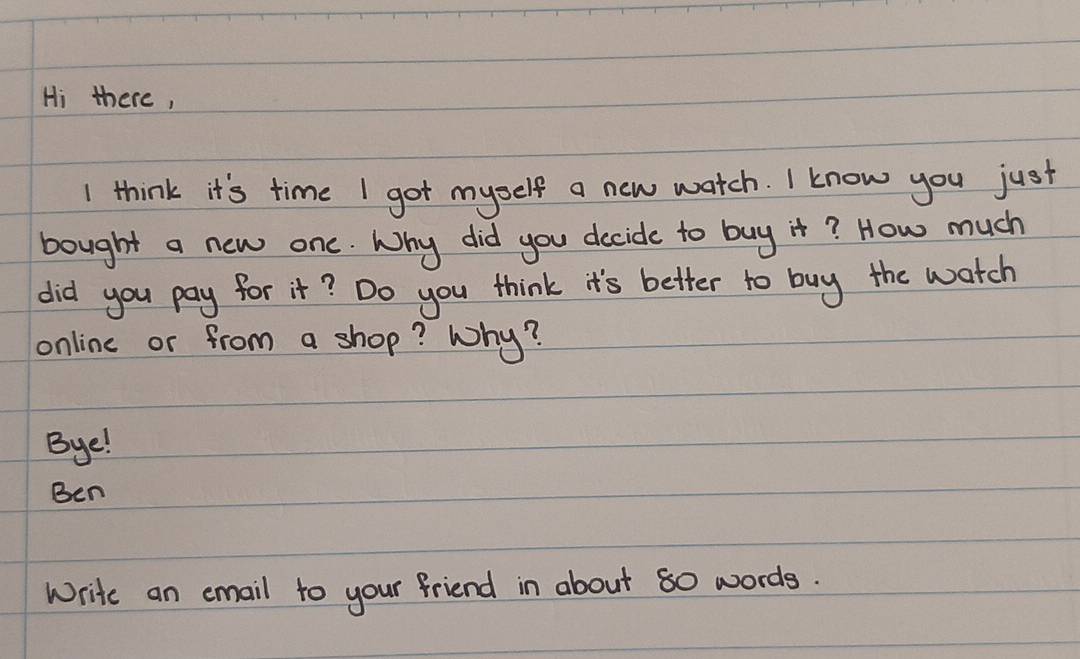 Hi there,
I think it's time I got myself a new watch. I know you just
bought a new one. Why did you decide to buy it? How much
did you pay for it? Do you think it's better to buy the watch
online or from a shop? Why?
Bye!
Ben
Write an email to your friend in about 80 words.